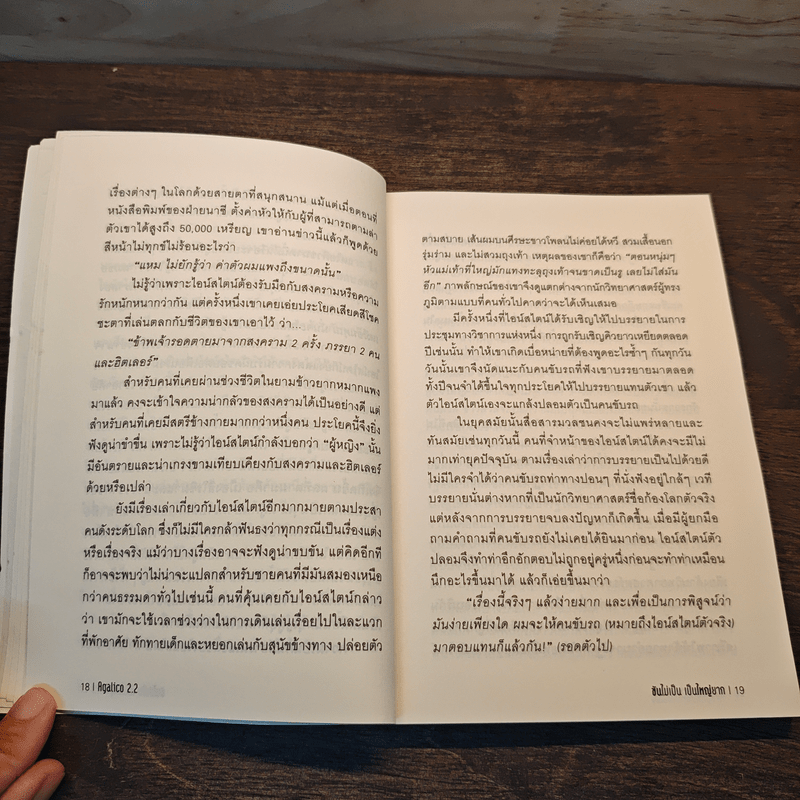 เรื่องต่างๆ ในโลกด้วยสายตาที่สนุกสนาน แม้แต่เมื่อตอนที่
หนังสือพิมพ์ของฝ่ายนาซี ตั้งค่าหัวให้กับผู้ที่สามารถตามล่า
ตัวเขาได้สูงถึง 50,000 เหรียญ เขาอ่านข่าวนี้แล้วก็พูดด้วย
สีหน้าไม่ทุกข์ไม่ร้อนอะไรว่า
“แหม ไม่ยักรู้ว่า ค่าตัวผมแพงถึงขนาดนั้น”
ไม่รู้ว่าเพราะไอน์สไตน์ต้องรับมือกับสงครามหรือความ
รักหนักหนากว่ากัน แต่ครั้งหนึ่งเขาเคยเอ่ยประโยคเสียดสีโชค
ชะตาที่เล่นตลกกับชีวิตของเขาเอาไว้ ว่า...
“ข้าพเจ้ารอดตายมาจากสงคราม 2 ครั้ง ภรรยา 2 คน
และฮิตเลอร์”
สำหรับคนที่เคยผ่านช่วงชีวิตในยามข้าวยากหมากแพง
มาแล้ว คงจะเข้าใจความน่ากลัวของสงครามได้เป็นอย่างดี แต่
สำหรับคนที่เคยมีสตรีข้างกายมากกว่าหนึ่งคน ประโยคนี้จึงยิ่ง
ฟังดูน่าขำขื่น เพราะไม่รู้ว่าไอน์สไตน์กำลังบอกว่า “ผู้หญิง” นั้น
มีอันตรายและน่าเกรงขามเทียบเคียงกับสงครามและฮิตเลอร์
ด้วยหรือเปล่า
ยังมีเรื่องเล่าเกี่ยวกับไอน์สไตน์อีกมากมายตามประสา
คนดังระดับโลก ซึ่งก็ไม่มีใครกล้าฟันธงว่าทุกกรณีเป็นเรื่องแต่ง
หรือเรื่องจริง แม้ว่าบางเรื่องอาจจะฟังดูน่าขบขัน แต่คิดอีกที
ก็อาจจะพบว่าไม่น่าจะแปลกสำหรับชายคนที่มีมันสมองเหนือ
กว่าคนธรรมดาทั่วไปเช่นนี้ คนที่คุ้นเคยกับไอน์สไตน์กล่าว
ว่า เขามักจะใช้เวลาช่วงว่างในการเดินเล่นเรื่อยไปในละแวก
ที่พักอาศัย ทักทายเด็กและหยอกเล่นกับสุนัขข้างทาง ปล่อยตัว
18 | Agalico 2.2
ตามสบาย เส้นผมบนศีรษะขาวโพลนไม่ค่อยได้หวี สวมเสื้อนอก
รุ่มร่าม และไม่สวมถุงเท้า เหตุผลของเขาก็คือว่า “ตอนหนุ่มๆ
หัวแม่เท้าที่ใหญ่มักแทงทะลุถุงเท้าจนขาดเป็นรู เลยไม่ใส่มัน
อีก” ภาพลักษณ์ของเขาจึงดูแตกต่างจากนักวิทยาศาสตร์ผู้ทรง
ภูมิตามแบบที่คนทั่วไปคาดว่าจะได้เห็นเสมอ
มีครั้งหนึ่งที่ไอน์สไตน์ได้รับเชิญให้ไปบรรยายในการ
ประชุมทางวิชาการแห่งหนึ่ง การถูกรับเชิญคิวยาวเหยียดตลอด
ปีเช่นนั้น ทำให้เขาเกิดเบื่อหน่ายที่ต้องพูดอะไรซ้ำๆ กันทุกวัน
วันนั้นเขาจึงนัดแนะกับคนขับรถที่ฟังเขาบรรยายมาตลอด
ทั้งปีจนจำได้ขึ้นใจทุกประโยคให้ไปบรรยายแทนตัวเขา แล้ว
ตัวไอน์สไตน์เองจะแกล้งปลอมตัวเป็นคนขับรถ
ในยุคสมัยนั้นสื่อสารมวลชนคงจะไม่แพร่หลายและ
ทันสมัยเช่นทุกวันนี้ คนที่จำหน้าของไอน์สไตน์ได้คงจะมีไม่
มากเท่ายุคปัจจุบัน ตามเรื่องเล่าว่าการบรรยายเป็นไปด้วยดี
ไม่มีใครจำได้ว่าคนขับรถท่าทางปอนๆ ที่นั่งฟังอยู่ใกล้ๆ เวที
บรรยายนั่นต่างหากที่เป็นนักวิทยาศาสตร์ชื่อก้องโลกตัวจริง
แต่หลังจากการบรรยายจบลงปัญหาก็เกิดขึ้น เมื่อมีผู้ยกมือ
ถามคำถามที่คนขับรถยังไม่เคยได้ยินมาก่อน ไอน์สไตน์ตัว
ปลอมจึงทำท่าอึกอักตอบไม่ถูกอยู่ครู่หนึ่งก่อนจะทำท่าเหมือน
นึกอะไรขึ้นมาได้ แล้วก็เอ่ยขึ้นมาว่า
“เรื่องนี้จริงๆ แล้วง่ายมาก และเพื่อเป็นการพิสูจน์ว่า
มันง่ายเพียงใด ผมจะให้คนขับรถ (หมายถึงไอน์สไตน์ตัวจริง)
มาตอบแทนก็แล้วกัน!” (รอดตัวไป)
ขันไม่เป็น เป็นใหญ่ยาก | 19